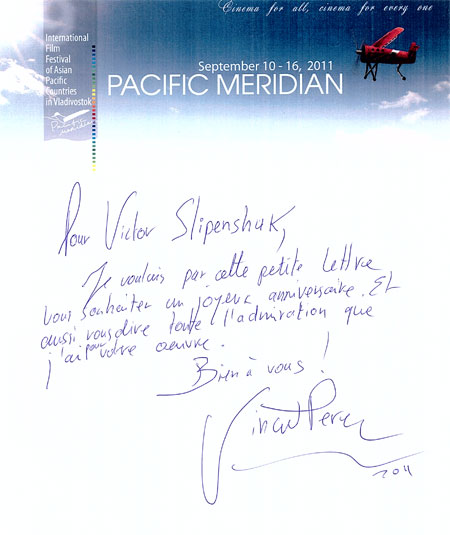 Cinema for all, cinema for every one
International
Film
Festival
of Asian
Pacific
Countries
in Vladivostok
Pacific
meridian
September 10 - 16, 2011
PACIFIC MERIDIAN
Pour Victor Slipenshuk,
Je voulais par cette petite lettre
vous souhaiter un joyeux anniversaire. Et
aussi vous dire toute l'admiration que
j'ai pour votre oeuvre.
Bien à vous !
Vincent Perez
2011